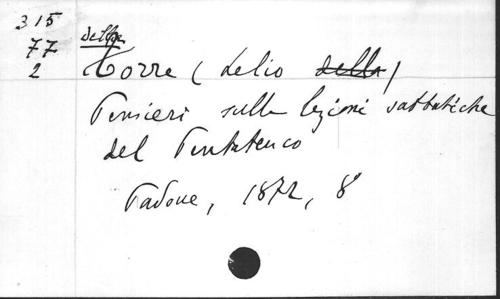 315
77
2
della
Torre (Lelio della)
Pensieri sulle lezioni sabbatiche
del Pentateuco
Padova, 1872, 8°